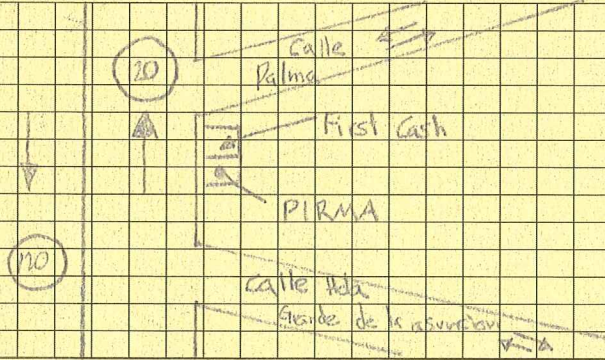 20
Calle
Palma
First Cash
PIRMA
20
Calle Hda
Grande de la asuncion